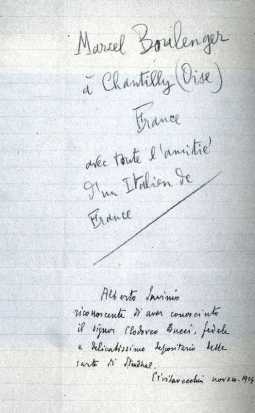 Marcel Boulenger
à Chantilly (Oise)
France
avec toute l'amitié
d'un Italien de
France
Alberto Savinio
riconoscente di aver conosciuto
il signor Clodoveo Bucci, fedele
e delicatissimo depositario delle
carte di Stendhal.
Civitavecchia